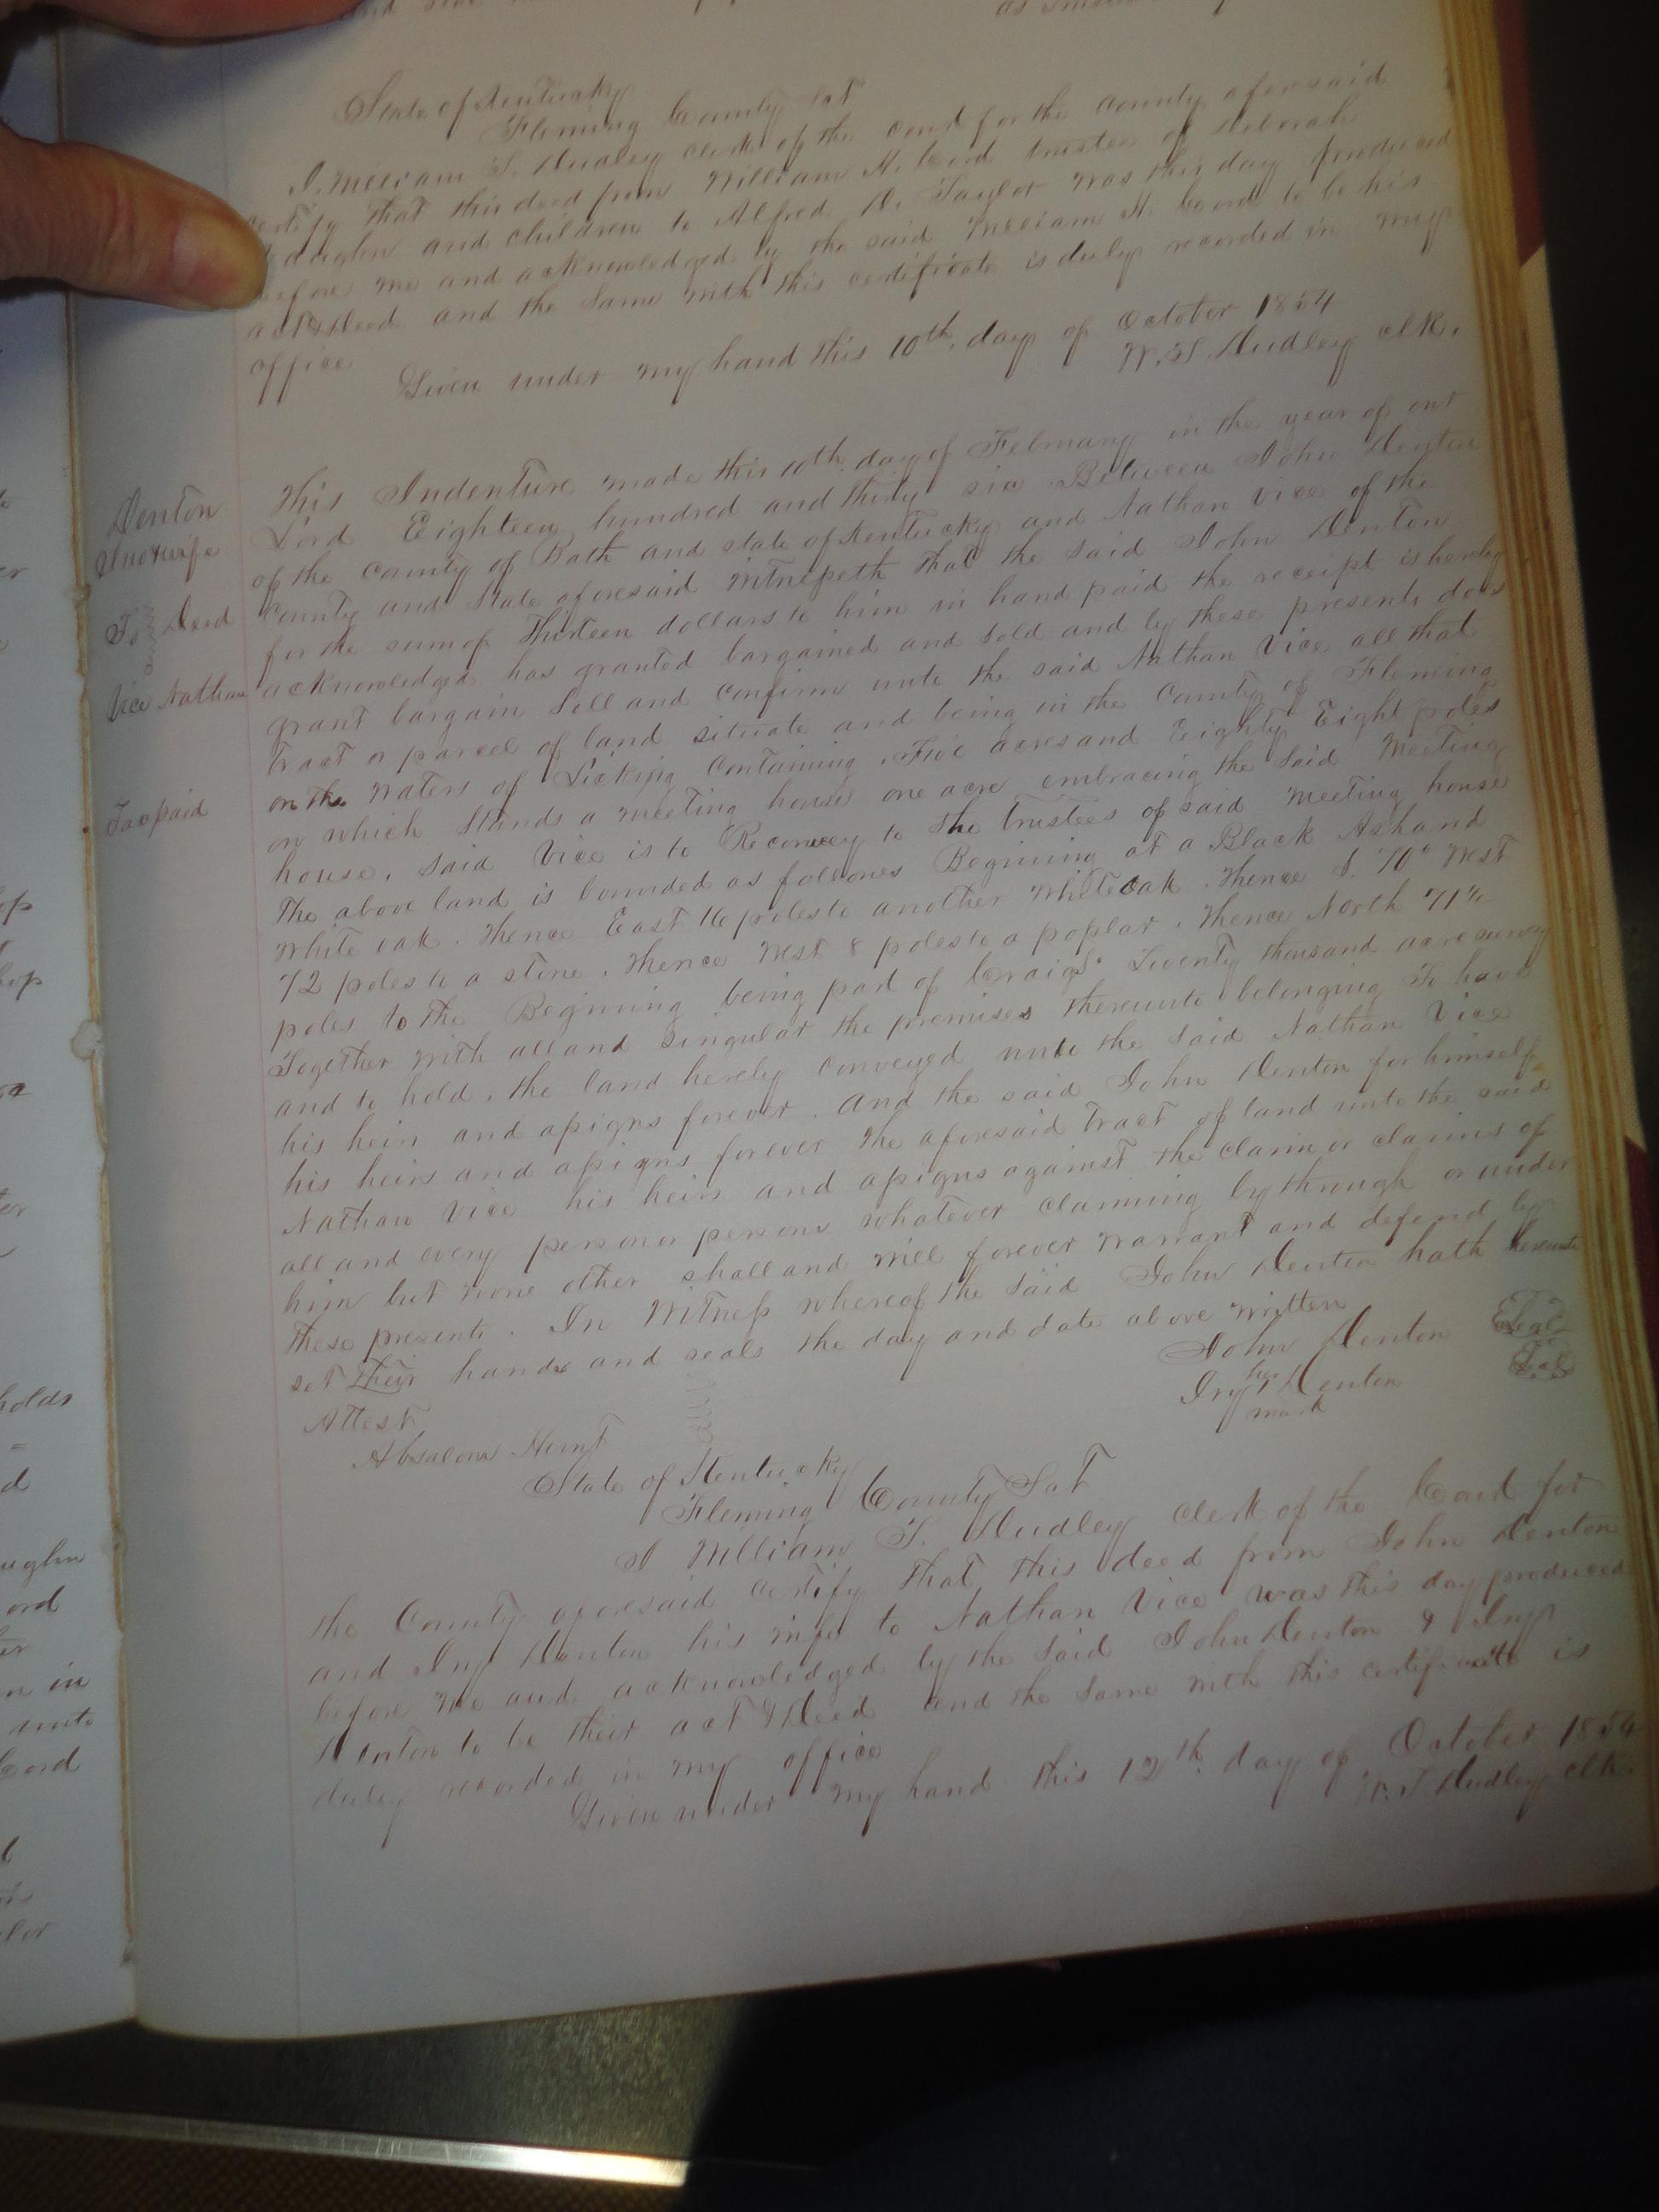 State of Kentucky
Fleming County Sct
I, William T. Dudley clerk of the court for the county aforesaid
certify that this deed from William H. Cord trustee of Deborah
Vaughn and children to Alfred D. Taylor was this day produced
before me and acknowledged by the said William H. Cord to be his
act & Deed and the same with this certificate is duly recorded in my
office
Given under my hand this 10th day of October 1854
W. T. Dudley clk.
Denton
And wife
To Deed
Vice Nathan
Tax paid
This Indenture made this 10th day of February in the year of our
Lord Eighteen hundred and thirty six Between John Denton
of the County of Bath and state of Kentucky and Nathan Vice of the
County and State aforesaid Witnesseth that the said John Denton
for the sum of Thirteen dollars to him in hand paid the receipt is hereby
acknowledged has granted bargained and sold and by these presents does
grant bargain Sell and confirm unto the said Nathan Vice all that
tract or parcel of land situate and being in the County of Fleming
on the waters of Licking Containing Five acres and Eighty Eight poles
on which Stands a meeting house one acre embracing the Said Meeting
house, Said Vice is to Reconvey to the trustees of said meeting house
The above land is bounded as follows Begining at a Black Ash and
white oak. Thence East 16 poles to another White oak. Thence S. 70° West
72 poles to a stone. Thence West 8 poles to a poplar. Thence North 71
poles to the Begining being part of Craigs Twenty thousand acre survey
Together with all and singular the premises thereunto belonging To have
and to hold, the land hereby conveyed unto the Said Nathan Vice
his heirs and assigns forever. And the said John Denton for himself
his heirs and assigns forever the aforesaid tract of land unto the said
Nathan Vice his heirs and assigns against the claim or claims of
all and every person or persons whatever claiming by through or under
him but none other shall and will forever warrant and defend by
these presents. In Witness whereof the said John Denton hath hereunto
set their hands and seals the day and date above written
John Denton Seal
her
Denton Seal
mark
Attest
Absalom Hunt
State of Kentucky
Fleming County Sct
I William T. Dudley clerk of the Court for
the County aforesaid certify that this deed from John Denton
and Denton his wife to Nathan Vice was this day produced
before me and acknowledged by the said John Denton &
Denton to be their act & Deed and the same with this certificate is
duly recorded in my office
Given under my hand this 12th day of October 1854
W. T. Dudley clk.